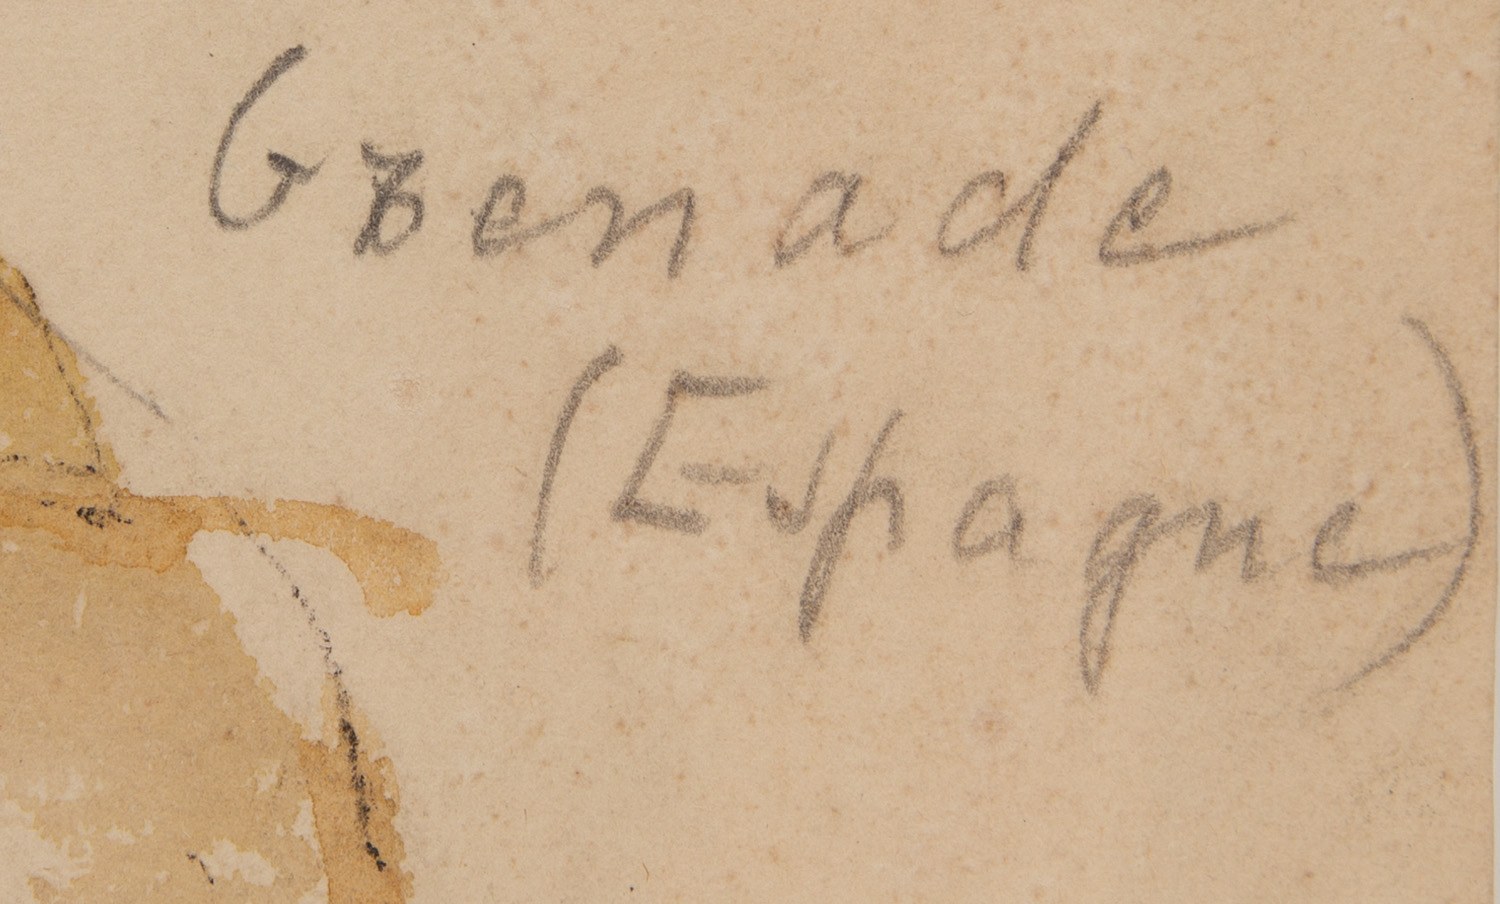 Grenade
(Espagne)